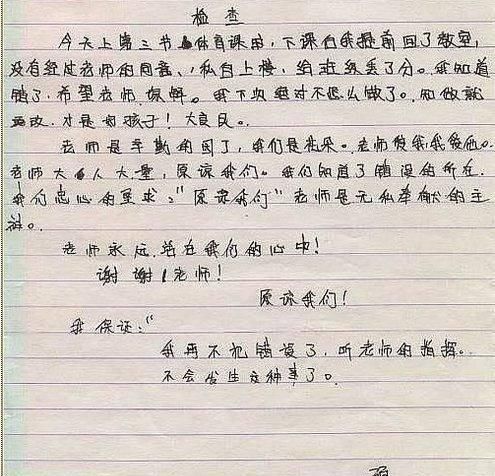 检查
今天上第三节体育课时,下课后我提前回了教室,
没有经过老师的同意、私自上楼,给班级丢了分。我知道
错了,希望老师原谅。我下次绝对不这么做了。知错就
改,才是好孩子!
老师是辛勤的园丁,我们是花朵。老师爱我,我爱他。
老师大人大量,原谅我们。我们知道了错误的所在.
我们忠心的要求:"原谅我们"老师是无私奉献的主
。
老师永远站在我们的心中!
谢谢!老师!
原谅我们!
我保证:"
我再不犯错误了,听老师的指挥。
不会发生这种事了。